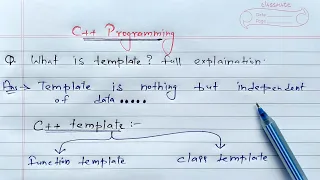 classmate
C++ Programming
Q. What is template? full explaination.
Ans:-> Template is nothing but independent
of data.....
C++ template :-
Function template
Class template